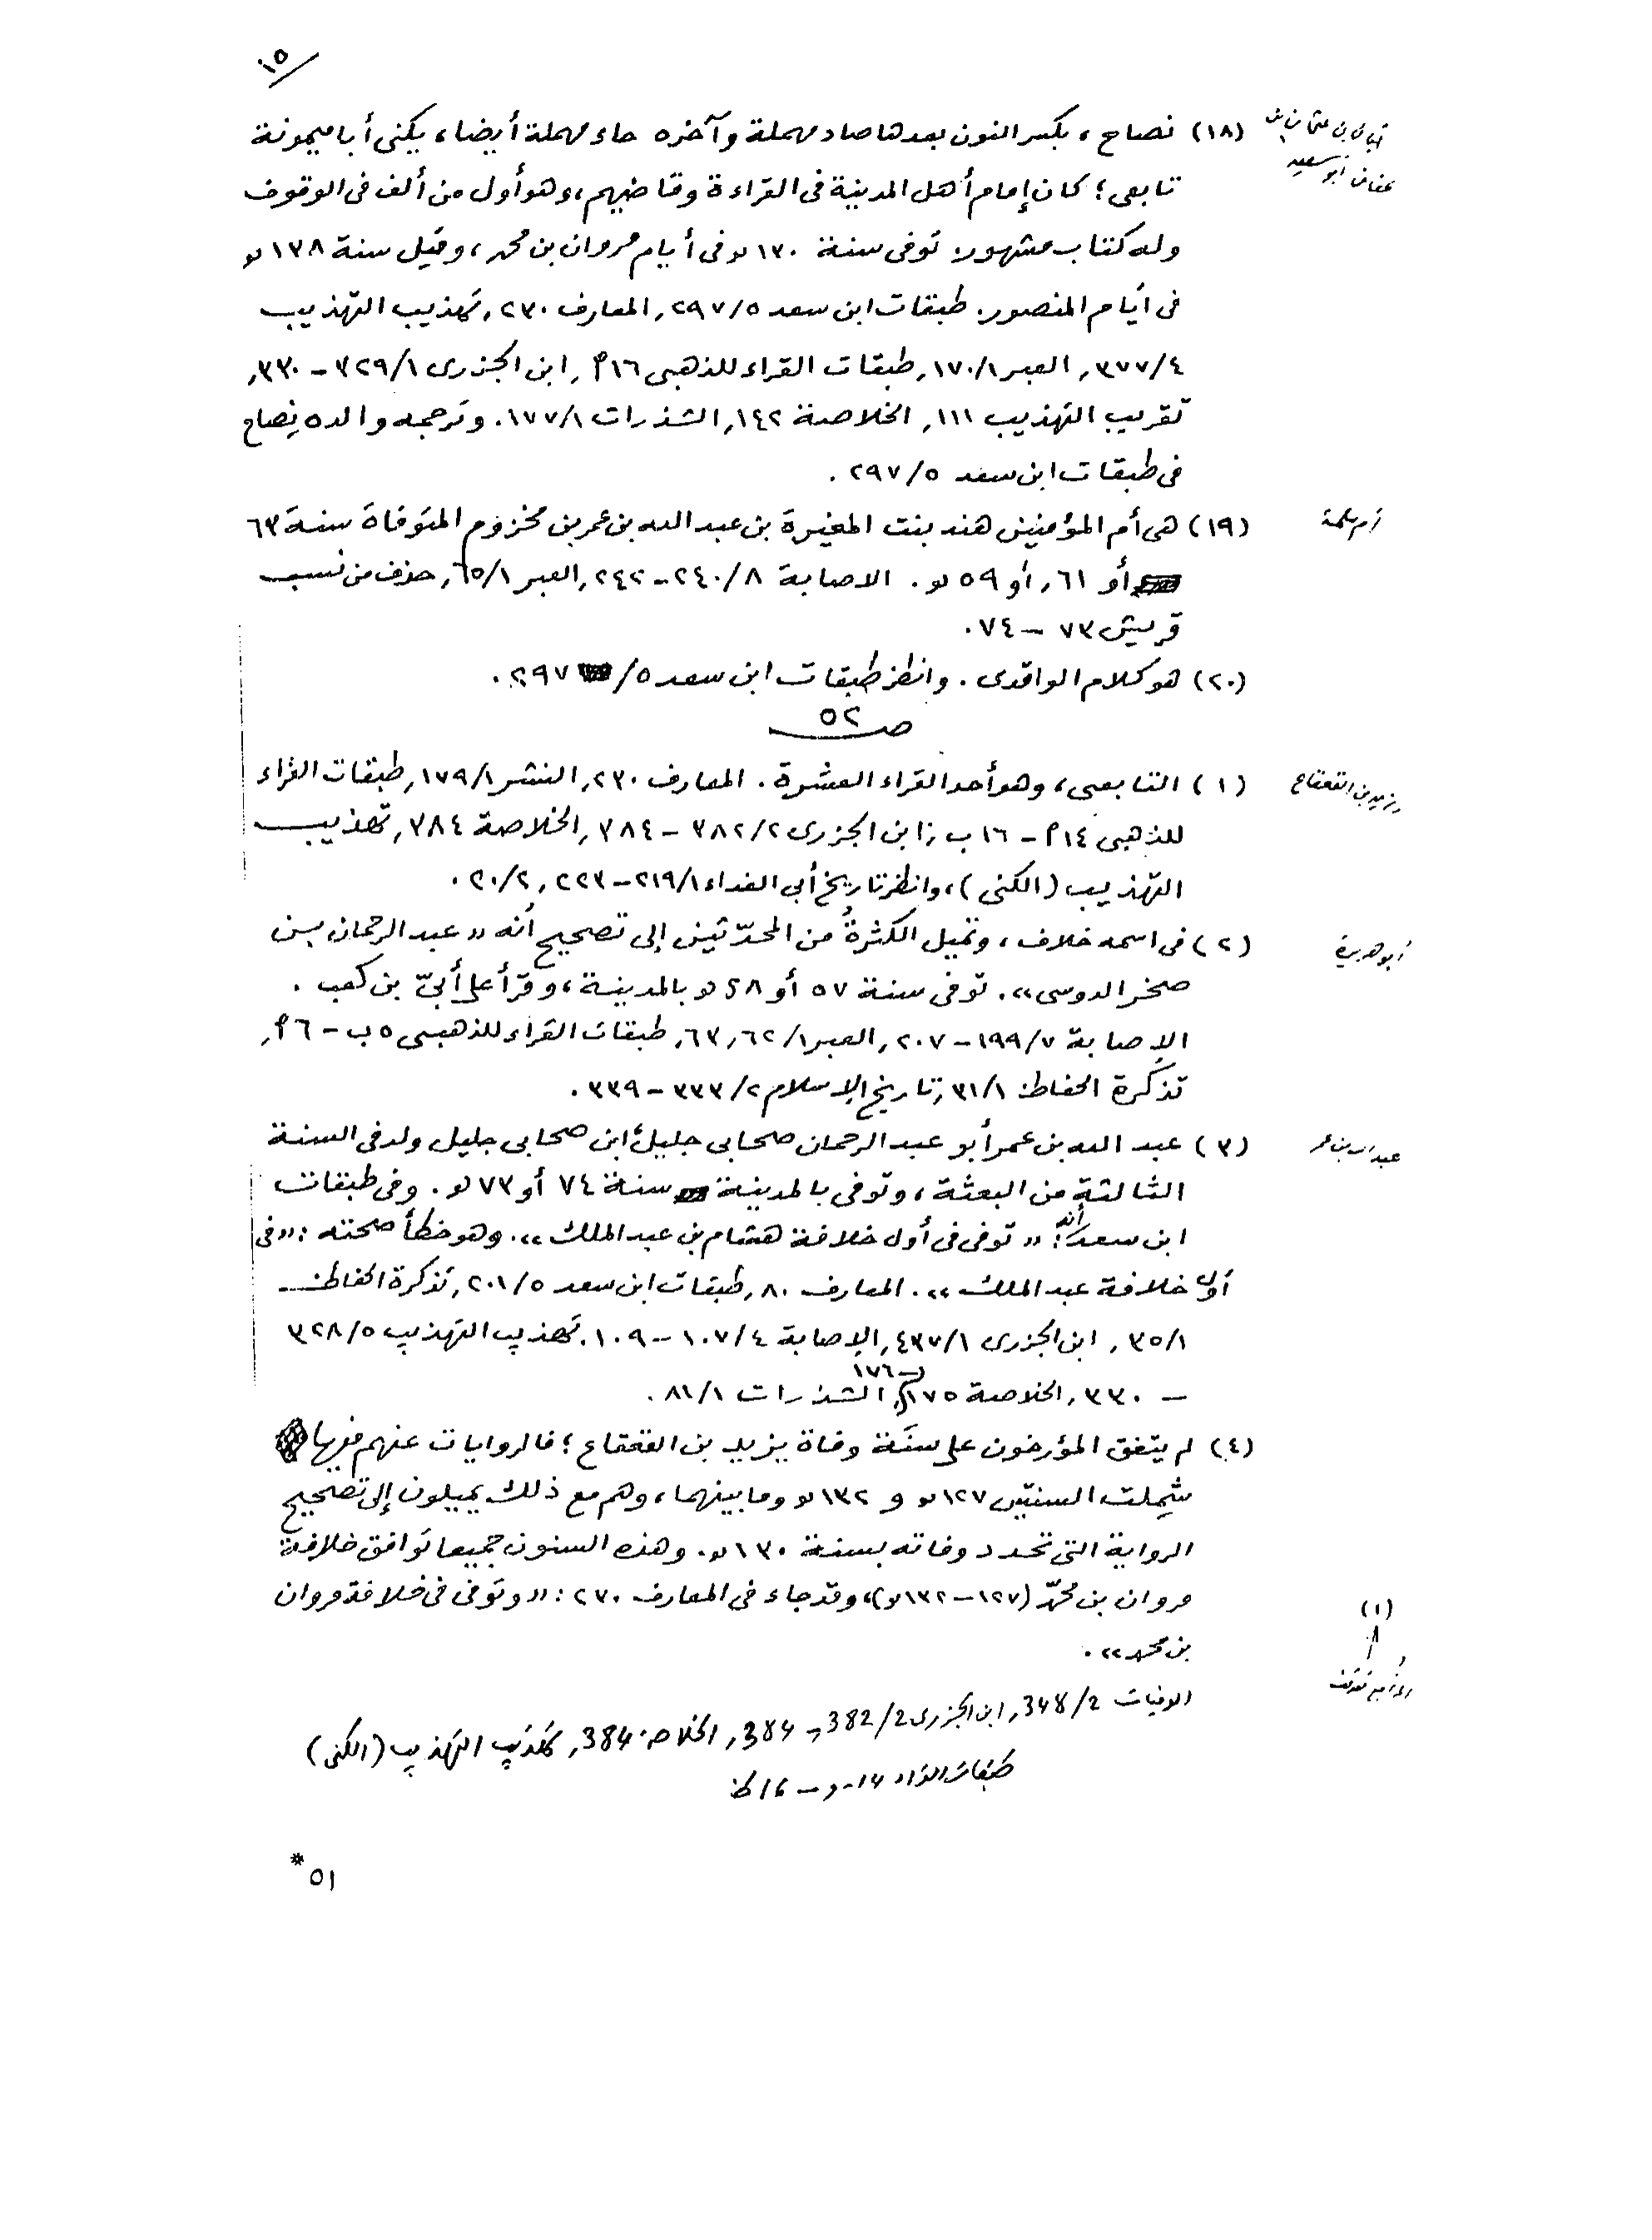 ١٥
(١٨) نصاح، بكسر النون بعدها صاد مهملة وآخره حاء مهملة أيضا، يكنى أبا ميمونة
أبان بن عثمان بن
عفان أبو سعيد
تابعى؛ كان إمام أهل المدينة فى القراءة وقاضيهم، وهو أول من ألف فى الوقوف
وله كتاب مشهور. توفى سنة ١٣٠ ھ فى أيام مروان بن محمد، وقيل سنة ١٣٨ ھ
فى أيام المنصور. طبقات ابن سعد ٢٩٧/٥, المعارف ٢٣٠, تهذيب التهذيب
٣٧٧/٤, العبر ١٧٠/١, طبقات القراء للذهبى ١٦ م, ابن الجزرى ٣٢٩/١ - ٣٣٠,
تقريب التهذيب ١١١, الخلاصة ١٤٢, الشذرات ١٧٧/١. وترجمه والده نِصاح
فى طبقات ابن سعد ٢٩٧/٥ .
(١٩) هى أم المؤمنين هند بنت المغيرة بن عبد الله بن عمر بن مخزوم المتوفاة سنة ٦٣
أم سلمة
أو ٦١, أو ٥٩ ھ. الاصابة ٢٤٠/٨ - ٢٤٢, العبر ٦٥/١, حذف من نسب
قريش ٧٣ - ٧٤.
(٢٠) هو كلام الواقدى. وانظر طبقات ابن سعد ٥/ ٢٩٧.
صـ ٥٢
(١) التابعى، وهو أحد القراء العشرة. المعارف ٢٣٠, النشر ١٧٩/١, طبقات القراء
يزيد بن القعقاع
للذهبى ١٤ م - ١٦ ب, ابن الجزرى ٣٨٢/٢ - ٣٨٤, الخلاصة ٣٨٤, تهذيب
التهذيب (الكنى)، وانظر تاريخ أبى الفداء ٢١٩/١ - ٢٢٣, ٢٠/٢ .
(٢) فى اسمه خلاف، وتميل الكثرةُ من المحدّثين إلى تصحيح أنه «عبد الرحمان بن
أبو هريرة
صخر الدوسى». توفى سنة ٥٧ أو ٥٨ ھ بالمدينة، وقرأ على أُبىّ بن كعب .
الإصابة ١٩٩/٧ - ٢٠٧, العبر ٦٢/١, ٦٣, طبقات القراء للذهبى ٥ ب - ٦ م,
تذكرة الحفاظ ٣١/١, تاريخ الإسلام ٣٣٣/٢ - ٣٣٩.
(٣) عبد الله بن عمر أبو عبد الرحمان صحابى جليل، ابن صحابى جليل ولد فى السنة
عبد الله بن عمر
الثالثة من البعثة، وتوفى بالمدينة سنة ٧٤ أو ٧٣ ھ. وفى طبقات
ابن سعد أنه: «توفى فى أول خلافة هشام بن عبد الملك». وهو خطأ صحته: «فى
أول خلافة عبد الملك». المعارف ٨٠, طبقات ابن سعد ٢٠١/٥, تذكرة الحفاظ
٣٥/١, ابن الجزرى ٤٣٧/١, الإصابة ١٠٧/٤ - ١٠٩. تهذيب التهذيب ٣٢٨/٥
- ٣٣٠, الخلاصة ١٧٥ - ١٧٦, الشذرات ٨١/١.
(٤) لم يتفق المؤرخون على سنة وفاة يزيد بن القعقاع؛ فالروايات عنهم فيها
شمِلت السنتين ١٢٧ ھ و ١٣٢ ھ وما بينهما، وهم مع ذلك يميلون إلى تصحيح
الرواية التى تحدد وفاته بسنة ١٣٠ ھ. وهذه السنون جميعا توافق خلافة
مروان بن محمّد (١٢٧ - ١٣٢ ھ)، وقد جاء فى المعارف ٢٧٠: «وتوفى فى خلافة مروان
بن محمد».
(١)
الوفيات 348/2, ابن الجزرى 382/2 - 384, الخلاصة 384, تهذيب التهذيب (الكنى)
طبقات القراء 14 - و - 16 ظ
٥١ *